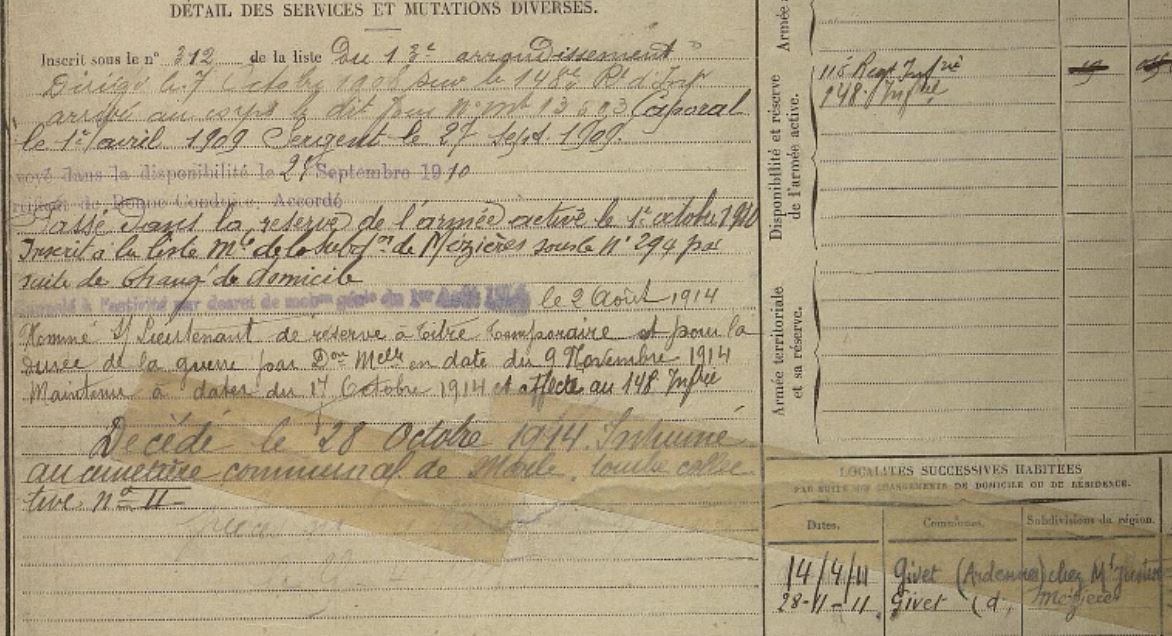 DÉTAIL DES SERVICES ET MUTATIONS DIVERSES.
Inscrit sous le n° 312 de la liste Du 13e arrondissement
Dirigé le 7 Octobre 1908 sur le 148e Rt d'Inf
arrivé au corps le dit jour n° mle 13 Caporal
le 1er avril 1909 Sergent le 27 Sept 1909.
voyé dans la disponibilité le Septembre 1910
de Bonne Conduite, Accordé
Passé dans la réserve de l'armée active le 1er octobre 1910
Inscrit à la liste Mle de la subdon de Mézières sous le N° 294 par
suite de changt de domicile
à l'activité par décret de mobon génle du 1er Août 1914 le 2 Août 1914
Nommé S/Lieutenant de réserve à titre temporaire et pour la
durée de la guerre par Don Melle en date du 9 Novembre 1914
Maintenu à dater du 17 Octobre 1914 et affecté au 148 Infie
Décédé le 28 Octobre 1914. Inhumé
au cimetière communal de tombe collec-
tive n° 11
Armée
Disponibilité et réserve
de l'armée active.
Régt Infie
148 Infie
Armée territoriale
et sa réserve.
LOCALITÉS SUCCESSIVES HABITÉES
PAR SUITE DE CHANGEMENTS DE DOMICILE OU DE RÉSIDENCE.
Dates. Communes. Subdivisions de région.
14/4/11 Givet (Ardennes) chez Mr
28-11-11. Givet (d) Mézières